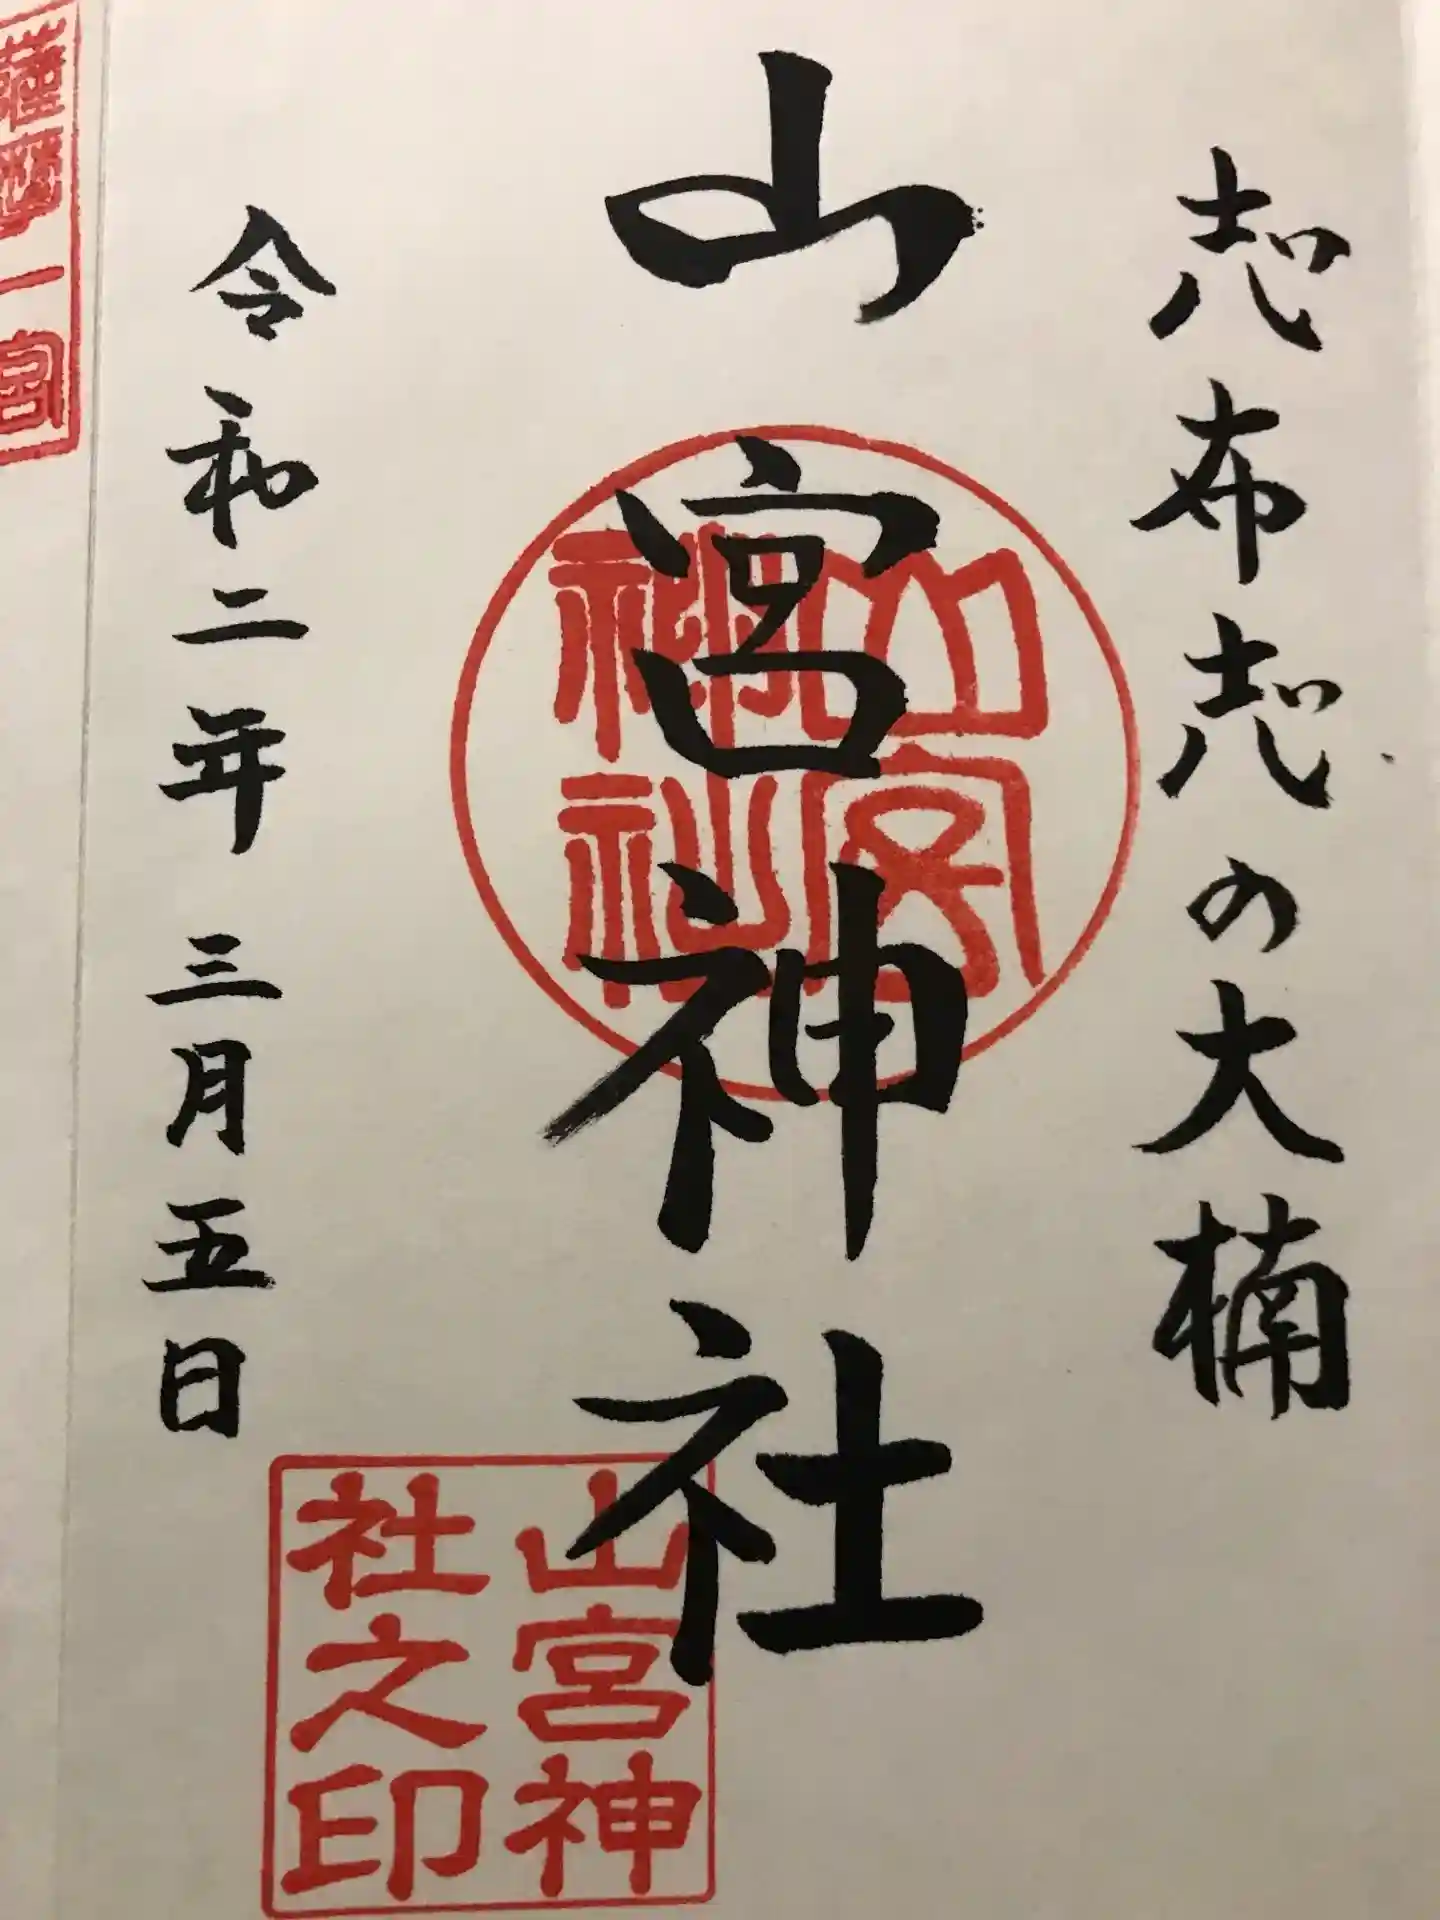 志布志の大楠
山宮神社
山宮神社
山宮神
社之印
令和二年三月五日
薩摩一宮